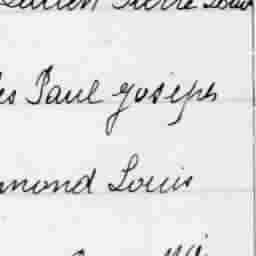 Lucien Pierre Louis
es Paul Joseph
mond Louis